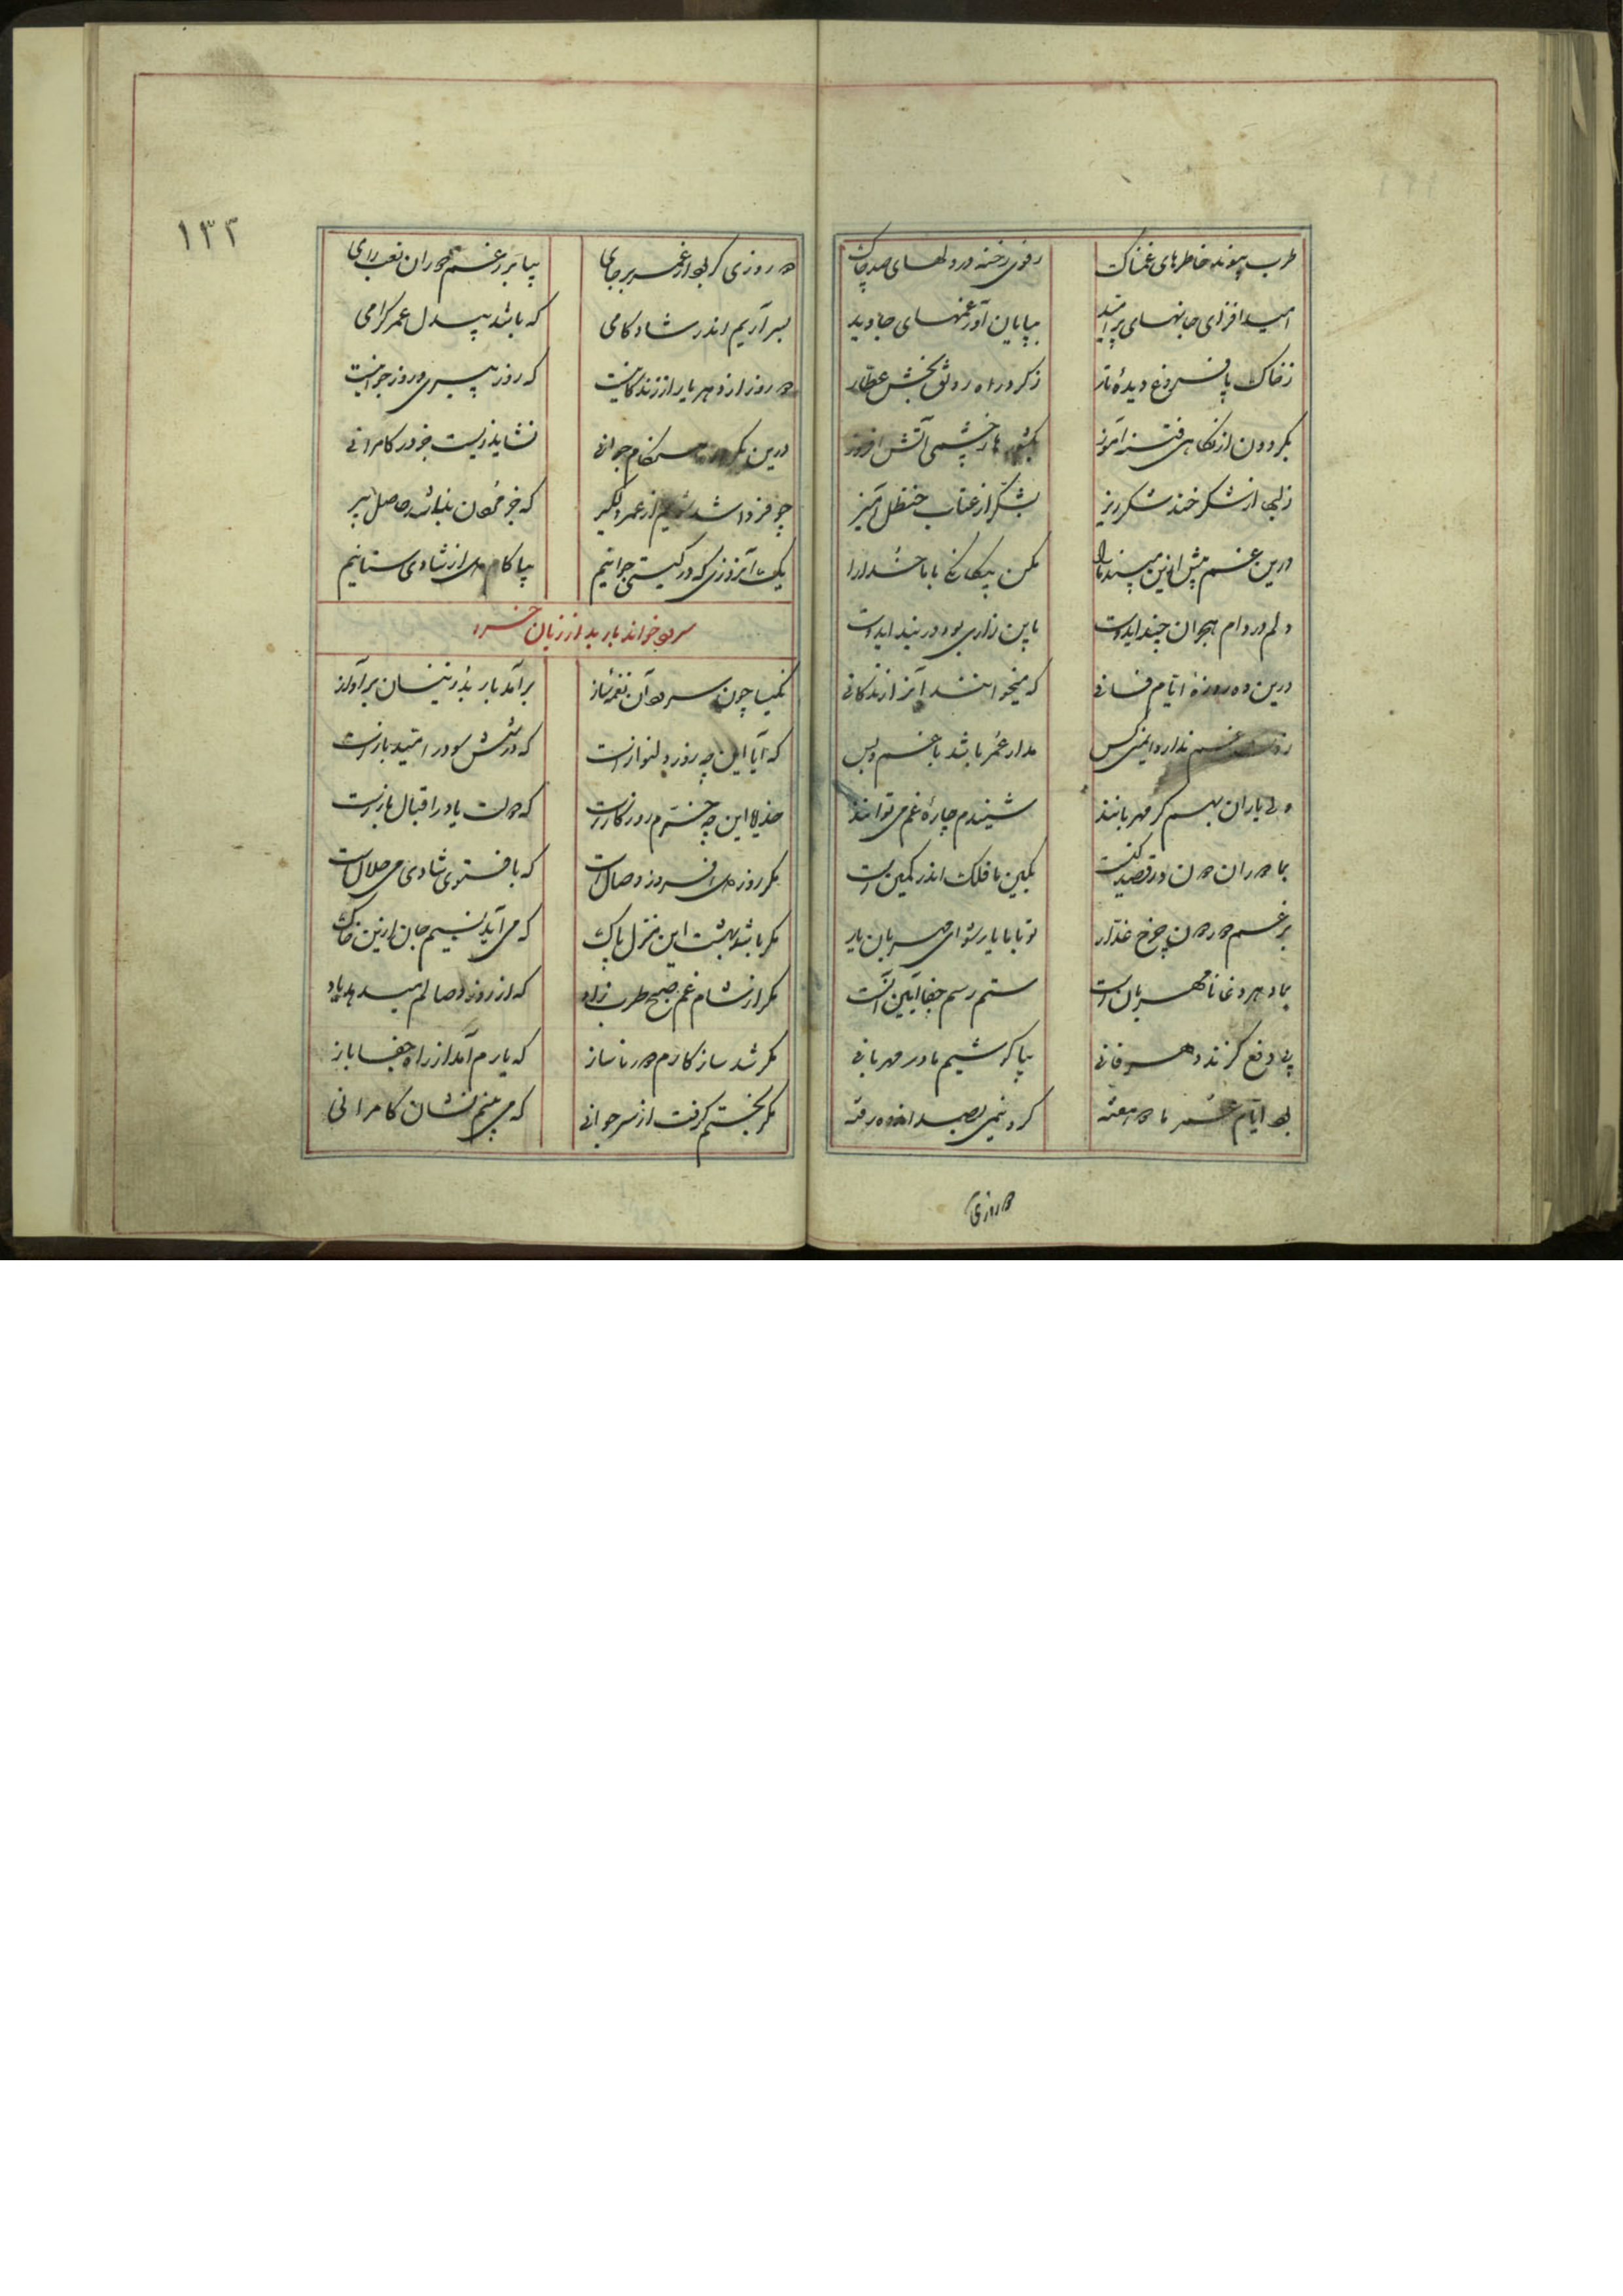 طرب پیوند خاطرهای غمناک رفوی رخنه در دلهای صد چاک
امید افزای جانهای پر امید بپایان آور غمهای جاوید
ز خاک پا فروغ دیده ناز ز گرد راه رونق بخش
بگردون از نگاهی فتنه آموز خشمی آتش افروز
ز لبها از شکر خند شکر ریز بشکر از عتاب حنظل آمیز
درین غم بیش ازین مپسند ما را مکن بیگانگی با ما خدا را
دلم در دام هجران چند ای دوست باین زاری بود در بند ای دوست
درین ده روزه ایام فانی که میخوانند آنرا زندگانی
غم ندارد ایمنی کس مدار عمر باشد با غم و بس
ولی یاران بهم گر مهربانند شنیدم چاره غم می توانند
بما دوران دون در قصد کینست بکین ما فلک اندر کمین است
برغم دور دون چرخ غدار تو با ما یار شو ای مهربان یار
بما دهر دغا نامهربان است ستم رسم جفا آیین آنست
پی دفع گزند دهر فانی بیا کوشیم ما در مهربانی
بود ایام عمر ما دو هفته کزو نیمی بصد اندوه رفته
دو روزی
۱۳۲
دو روزی گر بود از عمر بر جای بیا بر رغم دوران تعب رای
بسر آریم اندر شادکامی که باشد بیبدل عمر گرامی
دو روز از دهر یار از زندگانیست که روز پیری و روز جوانیست
درین یکروز هنگام جوانی نشاید زیست جز در کامرانی
چو فردا شد شویم از عمر دلگیر که جز نبود حاصل پیر
یک امروزی که در گیتی جوانیم بیا کام دل از شادی ستانیم
سرود خواندن باربد از زبان خسرو
نکیسا چون سرود آن نغمه ساز برآمد باربد را زینسان بر آواز
که آیا این چه روز دلنوازست که در بر امید بازست
خدایا این چه خرم روزگارست که دولت یاور اقبال یارست
مگر روز دل افروز وصال است که با فتوی شادی می حلال است
مگر باشد بهشت این منزل پاک که می آید نسیم جان ازین خاک
مگر از شام غم صبح طرب زاد که از روز وصالم میدهد یاد
مگر شد سازگارم دور ناساز که یارم آمد از راه جفا باز
مگر بختم گرفت از سر جوانی که می بینم نشان کامرانی